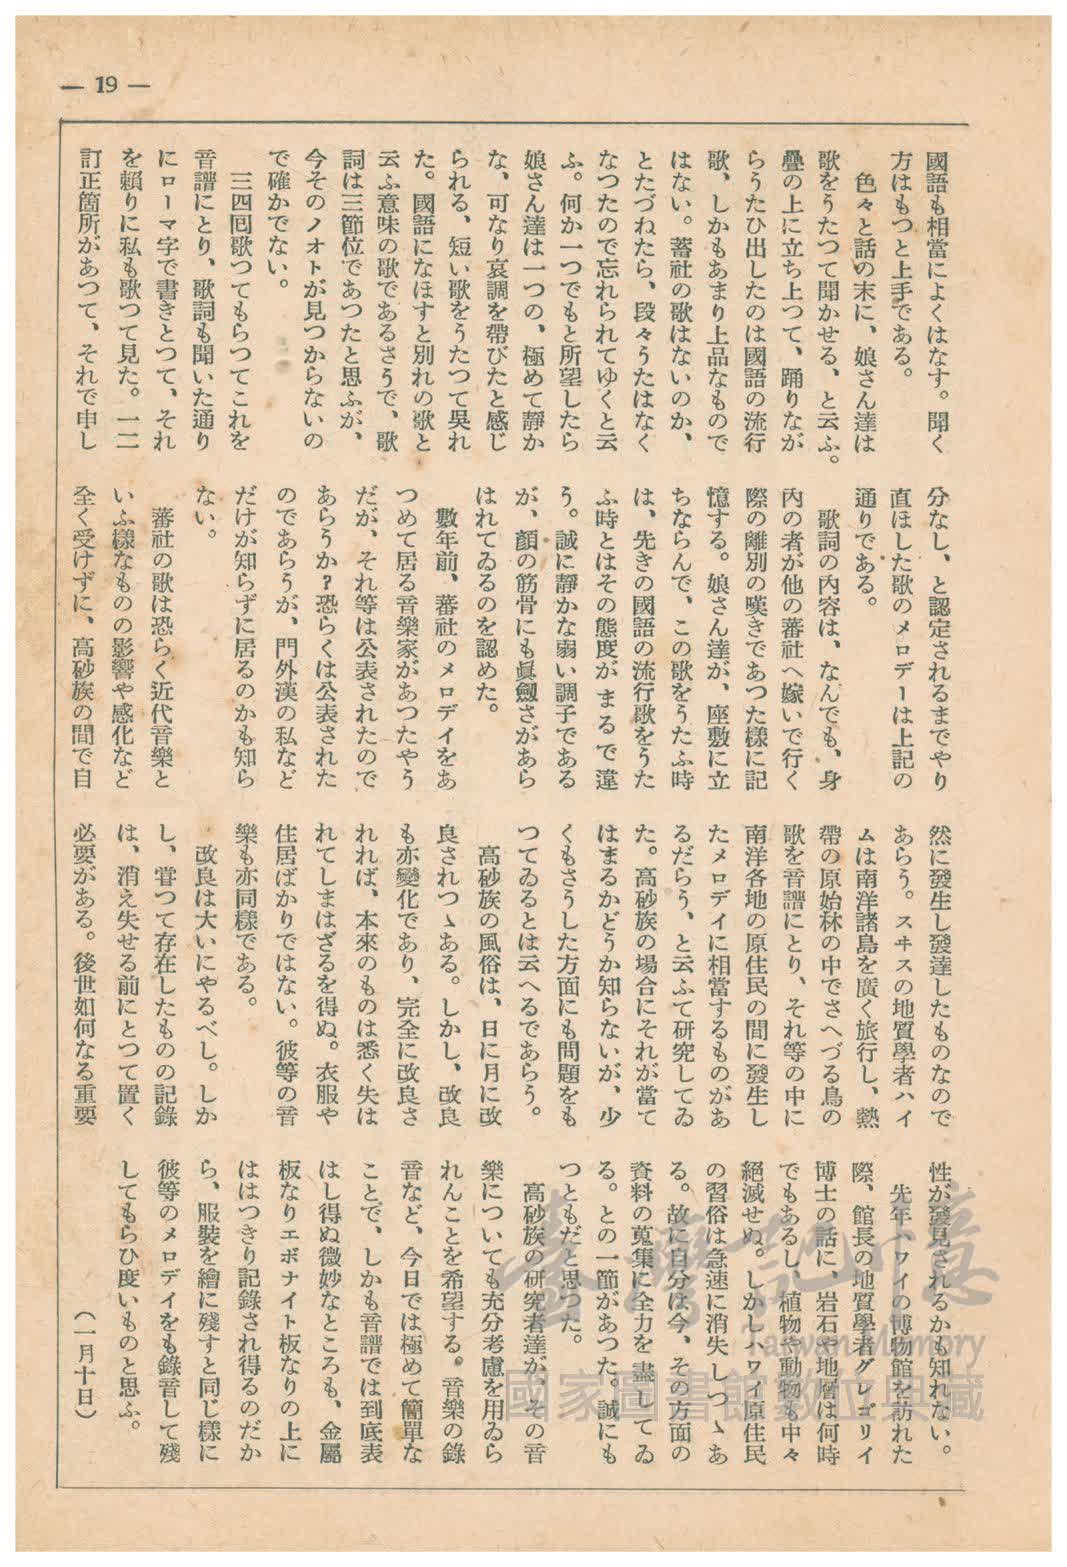 — 19 —
國語も相當によくはなす。聞く
方はもつと上手である。
色々と話の末に、娘さん達は
歌をうたつて聞かせる、と云ふ。
疊の上に立ち上つて、踊りなが
らうたひ出したのは國語の流行
歌、しかもあまり上品なもので
はない。蕃社の歌はないのか、
とたづねたら、段々うたはなく
なつたので忘れられてゆくと云
ふ。何か一つでもと所望したら
娘さん達は一つの、極めて靜か
な、可なり哀調を帶びたと感じ
られる、短い歌をうたつて吳れ
た。國語になほすと別れの歌と
云ふ意味の歌であるさうで、歌
詞は三節位であつたと思ふが、
今そのノオトが見つからないの
で確かでない。
三四囘歌つてもらつてこれを
音譜にとり、歌詞も聞いた通り
にローマ字で書きとつて、それ
を賴りに私も歌つて見た。一二
訂正箇所があつて、それで申し
分なし、と認定されるまでやり
直ほした歌のメロデーは上記の
通りである。
歌詞の內容は、なんでも、身
內の者が他の蕃社へ嫁いで行く
際の離別の嘆きであつた樣に記
憶する。娘さん達が、座敷に立
ちならんで、この歌をうたふ時
は、先きの國語の流行歌をうた
ふ時とはその態度がまるで違
う。誠に靜かな弱い調子である
が、顏の筋骨にも眞劔さがあら
はれてゐるのを認めた。
數年前、蕃社のメロデイをあ
つめて居る音樂家があつたやう
だが、それ等は公表されたので
あらうか？恐らくは公表された
のであらうが、門外漢の私など
だけが知らずに居るのかも知ら
ない。
蕃社の歌は恐らく近代音樂と
いふ樣なものの影響や感化など
全く受けずに、高砂族の間で自
然に發生し發達したものなので
あらう。スヰスの地質學者ハイ
ムは南洋諸島を廣く旅行し、熱
帶の原始林の中でさへづる鳥の
歌を音譜にとり、それ等の中に
南洋各地の原住民の間に發生し
たメロデイに相當するものがあ
るだらう、と云ふて硏究してゐ
た。高砂族の場合にそれが當て
はまるかどうか知らないが、少
くもさうした方面にも問題をも
つてゐるとは云へるであらう。
高砂族の風俗は、日に月に改
良されつゝある。しかし、改良
も亦變化であり、完全に改良さ
れれば、本來のものは悉く失は
れてしまはざるを得ぬ。衣服や
住居ばかりではない。彼等の音
樂も亦同樣である。
改良は大いにやるべし。しか
し、甞つて存在したものの記錄
は、消え失せる前にとつて置く
必要がある。後世如何なる重要
性が發見されるかも知れない。
先年ハワイの博物館を訪れた
際、館長の地質學者グレゴリイ
博士の話に、岩石や地層は何時
でもあるし、植物や動物も中々
絕滅せぬ。しかしハワイ原住民
の習俗は急速に消失しつゝあ
る。故に自分は今、その方面の
資料の蒐集に全力を盡してゐ
る。との一節があつた。誠にも
つともだと思つた。
高砂族の硏究者達が、その音
樂についても充分考慮を用ゐら
れんことを希望する。音樂の錄
音など、今日では極めて簡單な
ことで、しかも音譜では到底表
はし得ぬ微妙なところも、金屬
板なりエボナイト板なりの上に
ははつきり記錄され得るのだか
ら、服裝を繪に殘すと同じ樣に
彼等のメロデイをも錄音して殘
してもらひ度いものと思ふ。
（一月十日）
臺灣記憶
Taiwan Memory
國家圖書館數位典藏